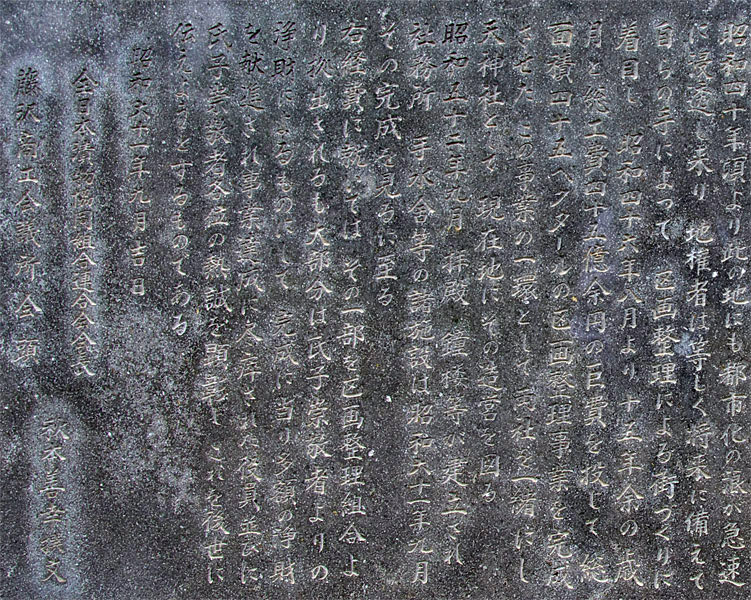 昭和四十年頃より此の地にも都市化の浪が急速
に浸透し来り 地権者は等しく将来に備えて
自らの手によって 区画整理による街づくりに
着目し 昭和四十六年八月より十五年余の歳
月と総工費四十五億余円の巨費を投じて 総
面積四十五ヘクタールの区画整理事業を完成
させた この事業の一環として両社を一緒にし
天神社として 現在地にその造営を図る
昭和五十二年九月 拝殿 鐘楼等が建立され
社務所 手水舎等の諸施設は昭和六十一年九月
その完成を見るに至る
右経費に就いては その一部を区画整理組合よ
り拠出されるも大部分は氏子崇敬者よりの
浄財によるものにして 完成に当り多額の浄財
を献進され事業達成に 役員並びに
氏子崇敬者各位の熱誠を顕彰して これを後世に
伝えようとするものである
昭和六十一年九月吉日
全日本 協同組合連合会会長
藤沢商工会議所会頭